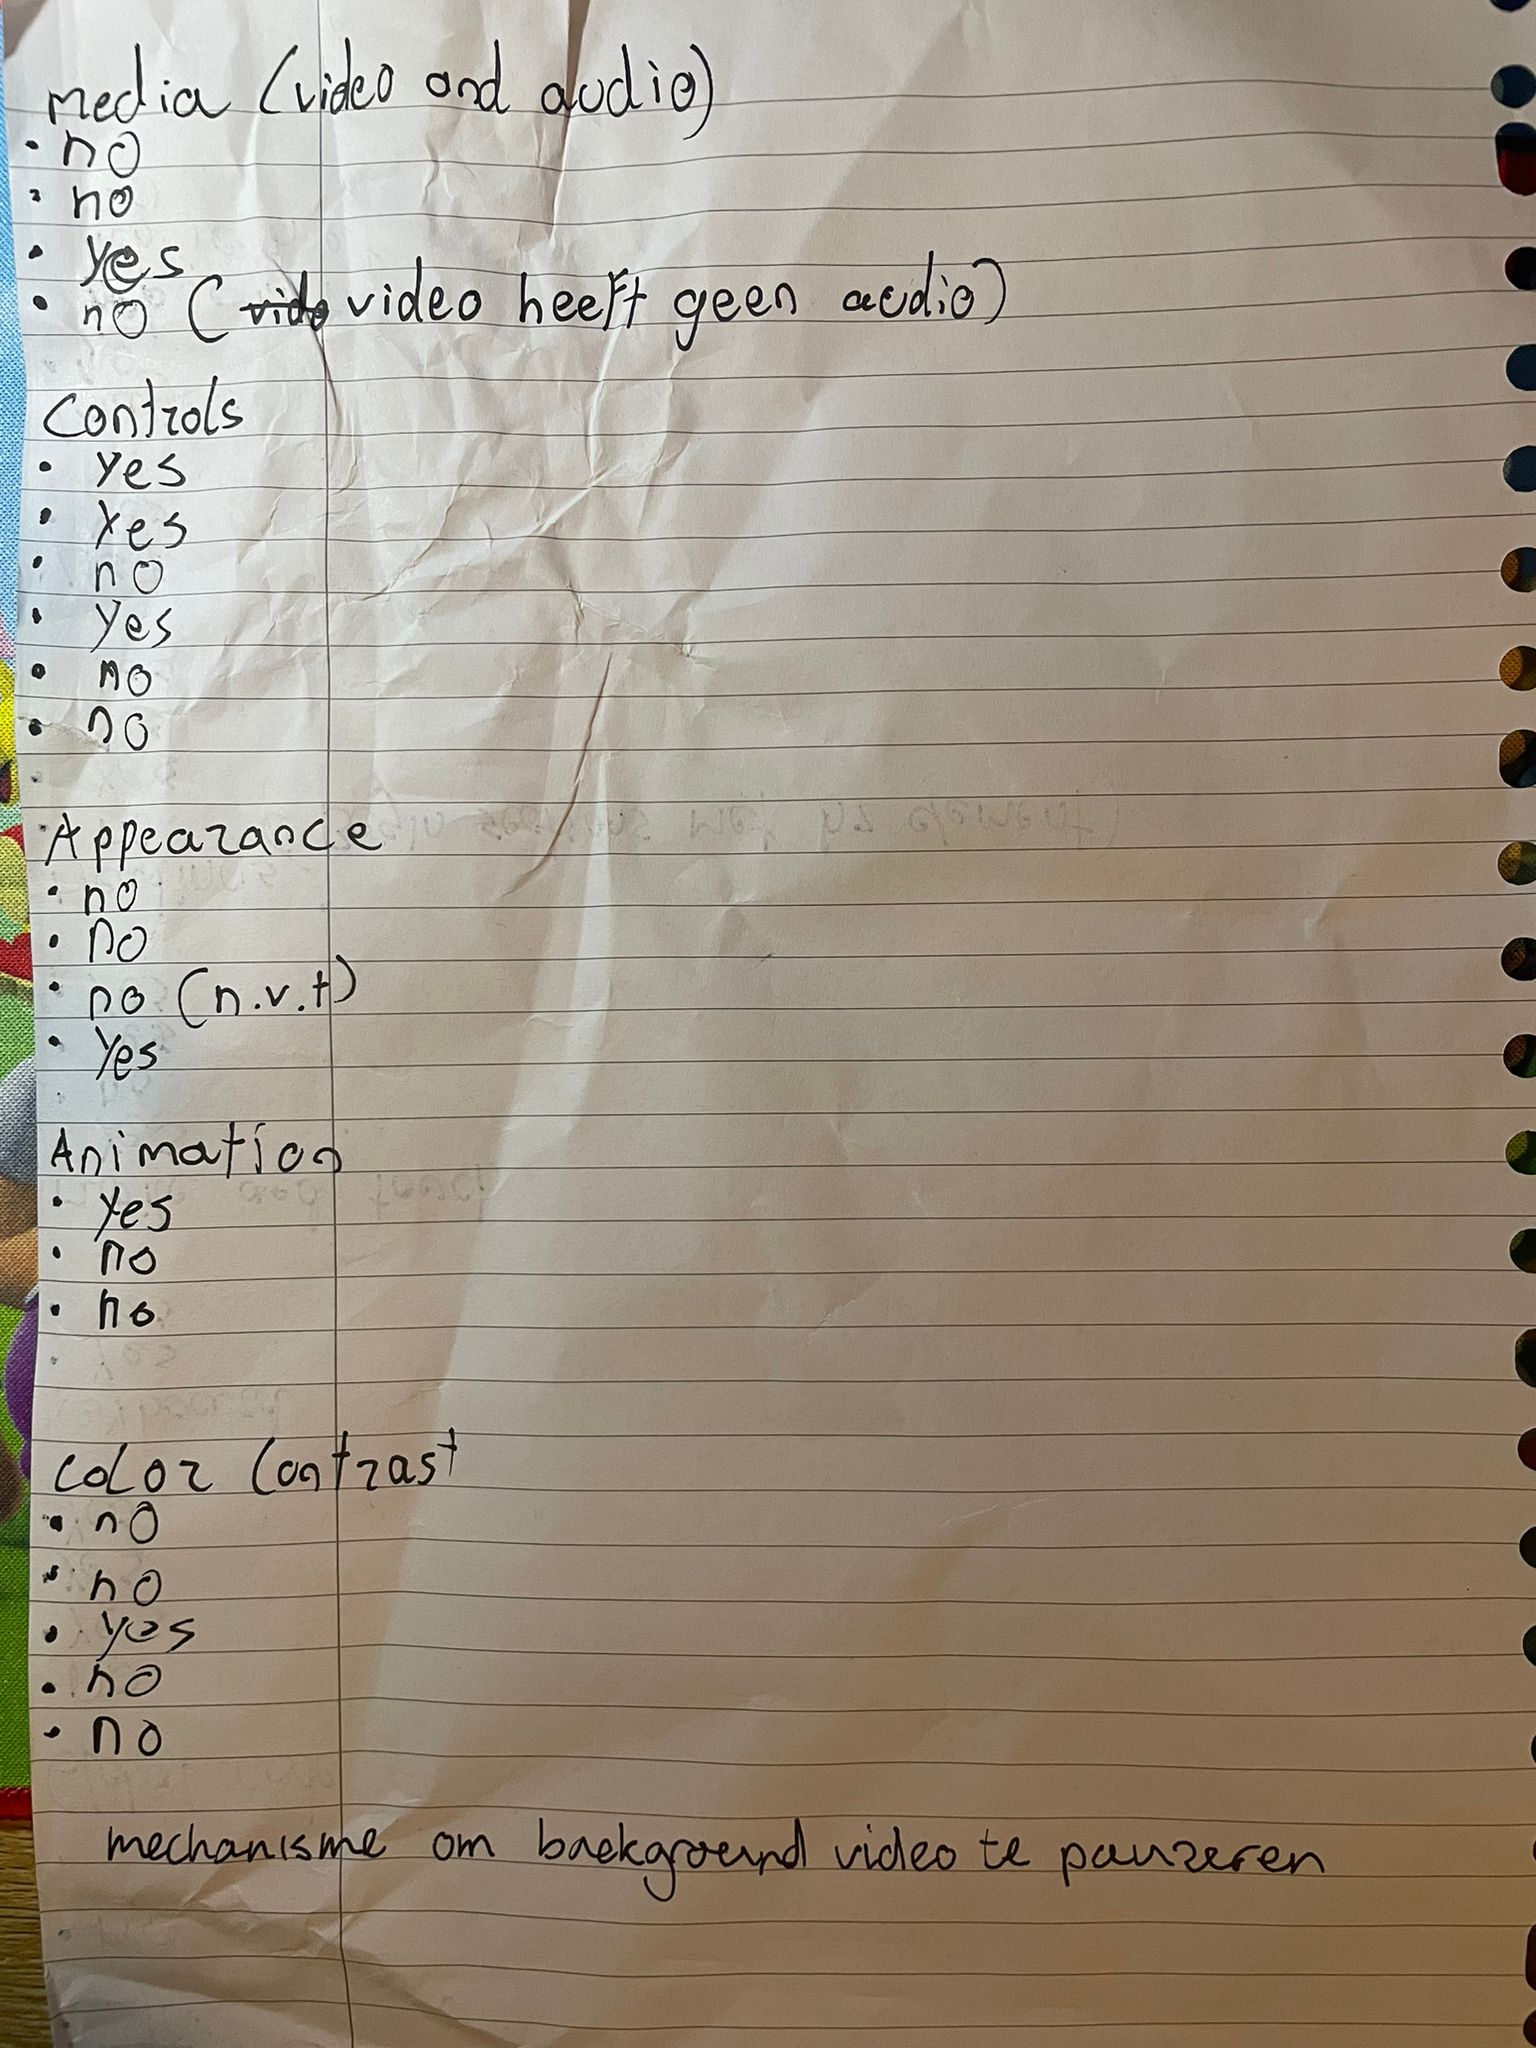 media (video and audio)
• no
• no
• yes
• no (vido video heeft geen audio)
Controls
• yes
• yes
• no
• yes
• no
• no
Appearance
• no
• no
• no (n.v.t)
• yes
Animation
• yes
• no
• no
Color Contrast
• no
• no
• yes
• no
• no
mechanisme om background video te pauzeren